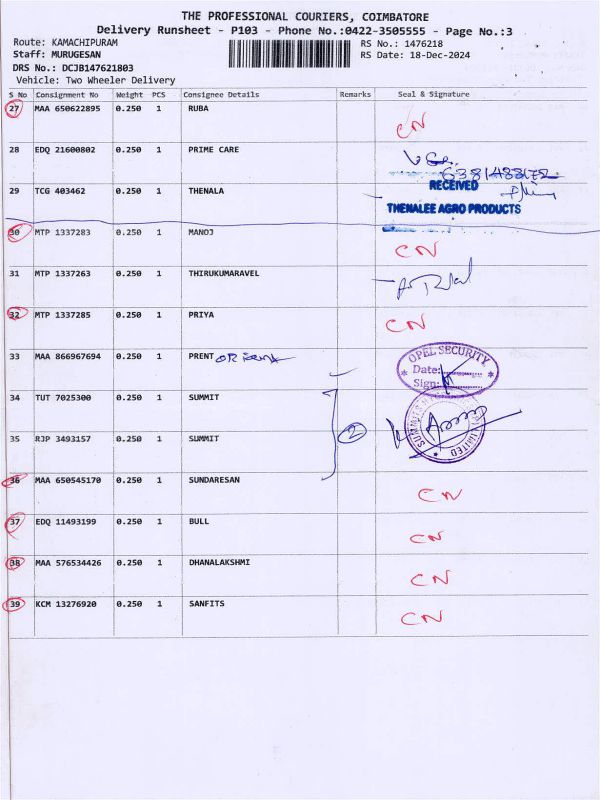 THE PROFESSIONAL COURIERS, COIMBATORE
Delivery Runsheet - P103 - Phone No.:0422-3505555 - Page No.:3
Route: KAMACHIPURAM RS No.: 1476218
Staff: MURUGESAN RS Date: 18-Dec-2024
DRS No.: DCJB147621803
Vehicle: Two Wheeler Delivery
S No Consignment No Weight PCS Consignee Details Remarks Seal & Signature
27 MAA 650622895 0.250 1 RUBA CN
28 EDQ 21600802 0.250 1 PRIME CARE
RECEIVED
29 TCG 403462 0.250 1 THENALA
THENALEE AGRO PRODUCTS
30 MTP 1337283 0.250 1 MANOJ CN
31 MTP 1337263 0.250 1 THIRUKUMARAVEL
32 MTP 1337285 0.250 1 PRIYA CN
33 MAA 866967694 0.250 1 PRENT
OPEL SECURITY
Date:
Sign:
34 TUT 7025300 0.250 1 SUMMIT
2
35 RJP 3493157 0.250 1 SUMMIT
36 MAA 650545170 0.250 1 SUNDARESAN CN
37 EDQ 11493199 0.250 1 BULL CN
38 MAA 576534426 0.250 1 DHANALAKSHMI CN
39 KCM 13276920 0.250 1 SANFITS CN